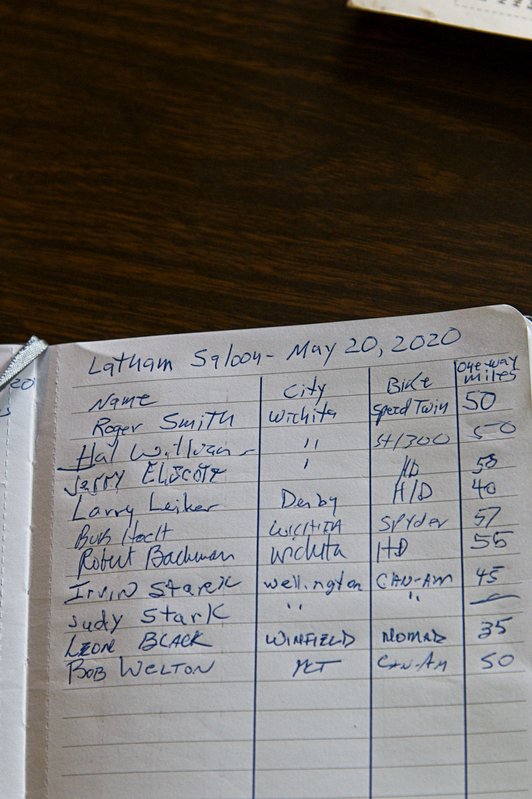 Latham Saloon - May 20, 2020
Name City Bike one-way miles
Roger Smith Wichita Speed Twin 50
Hal " ST1300 50
Jerry " HD
Larry Leiker Derby H/D 40
Bub Wichita Spyder 57
Robert Bachman Wichita HD 55
Irvin Stark Wellington CAN-AM 45
Judy Stark " "
Leon BLACK WINFIELD NOMAD 35
BOB WELTON CAN-AM 50
20